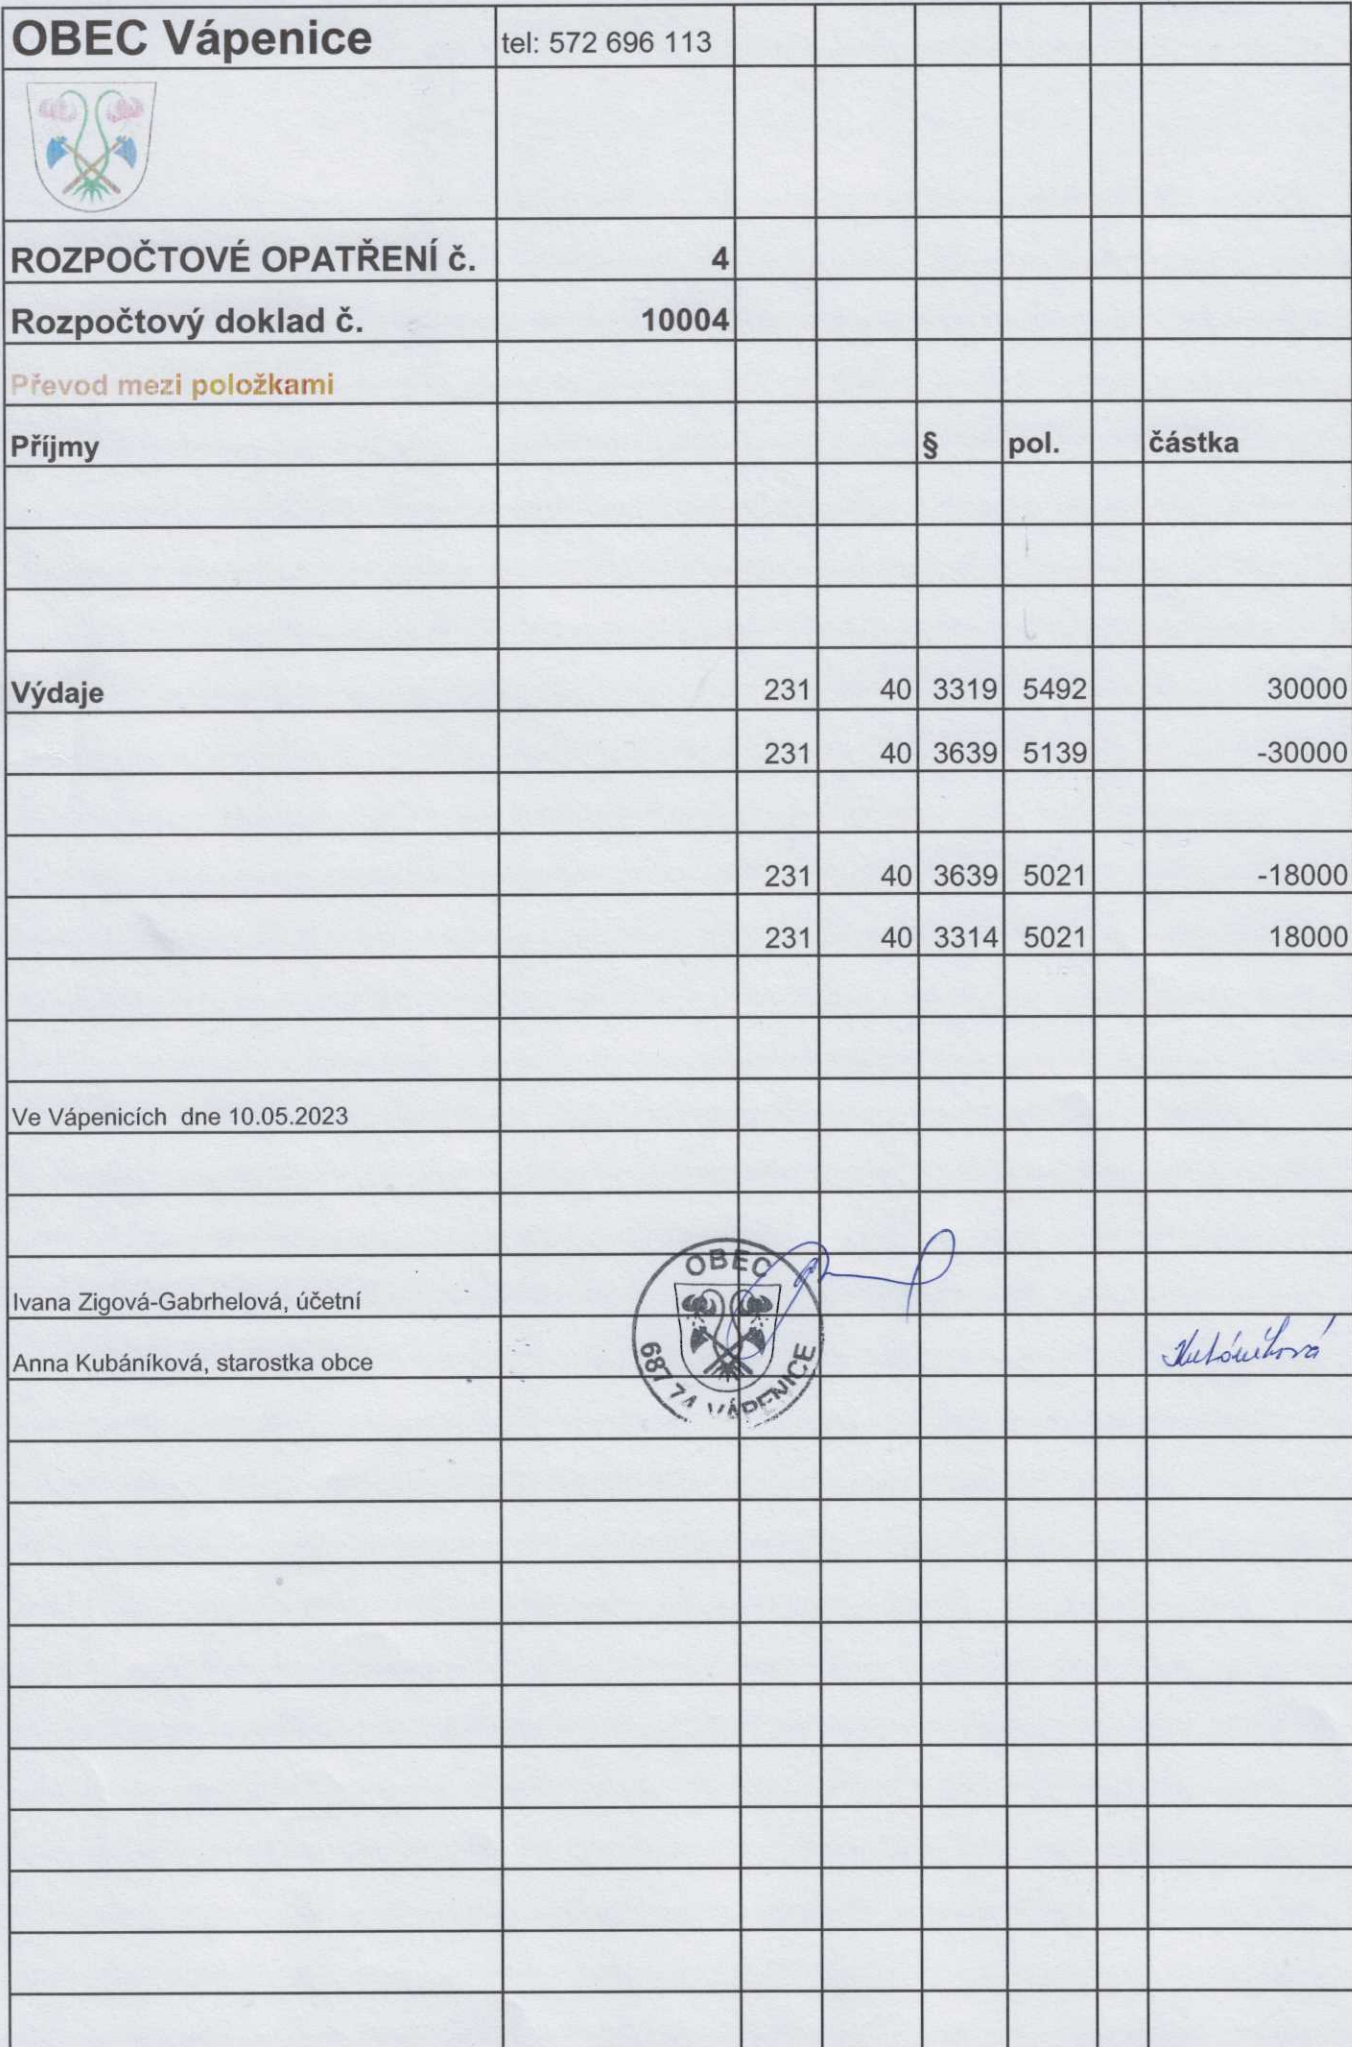 OBEC Vápenice tel: 572 696 113
ROZPOČTOVÉ OPATŘENÍ č. 4
Rozpočtový doklad č. 10004
Převod mezi položkami
Příjmy § pol. částka
Výdaje 231 40 3319 5492 30000
231 40 3639 5139 -30000
231 40 3639 5021 -18000
231 40 3314 5021 18000
Ve Vápenicích dne 10.05.2023
OBEC
687 74 VÁPENICE
Ivana Zigová-Gabrhelová, účetní
Anna Kubáníková, starostka obce
Kubáníková